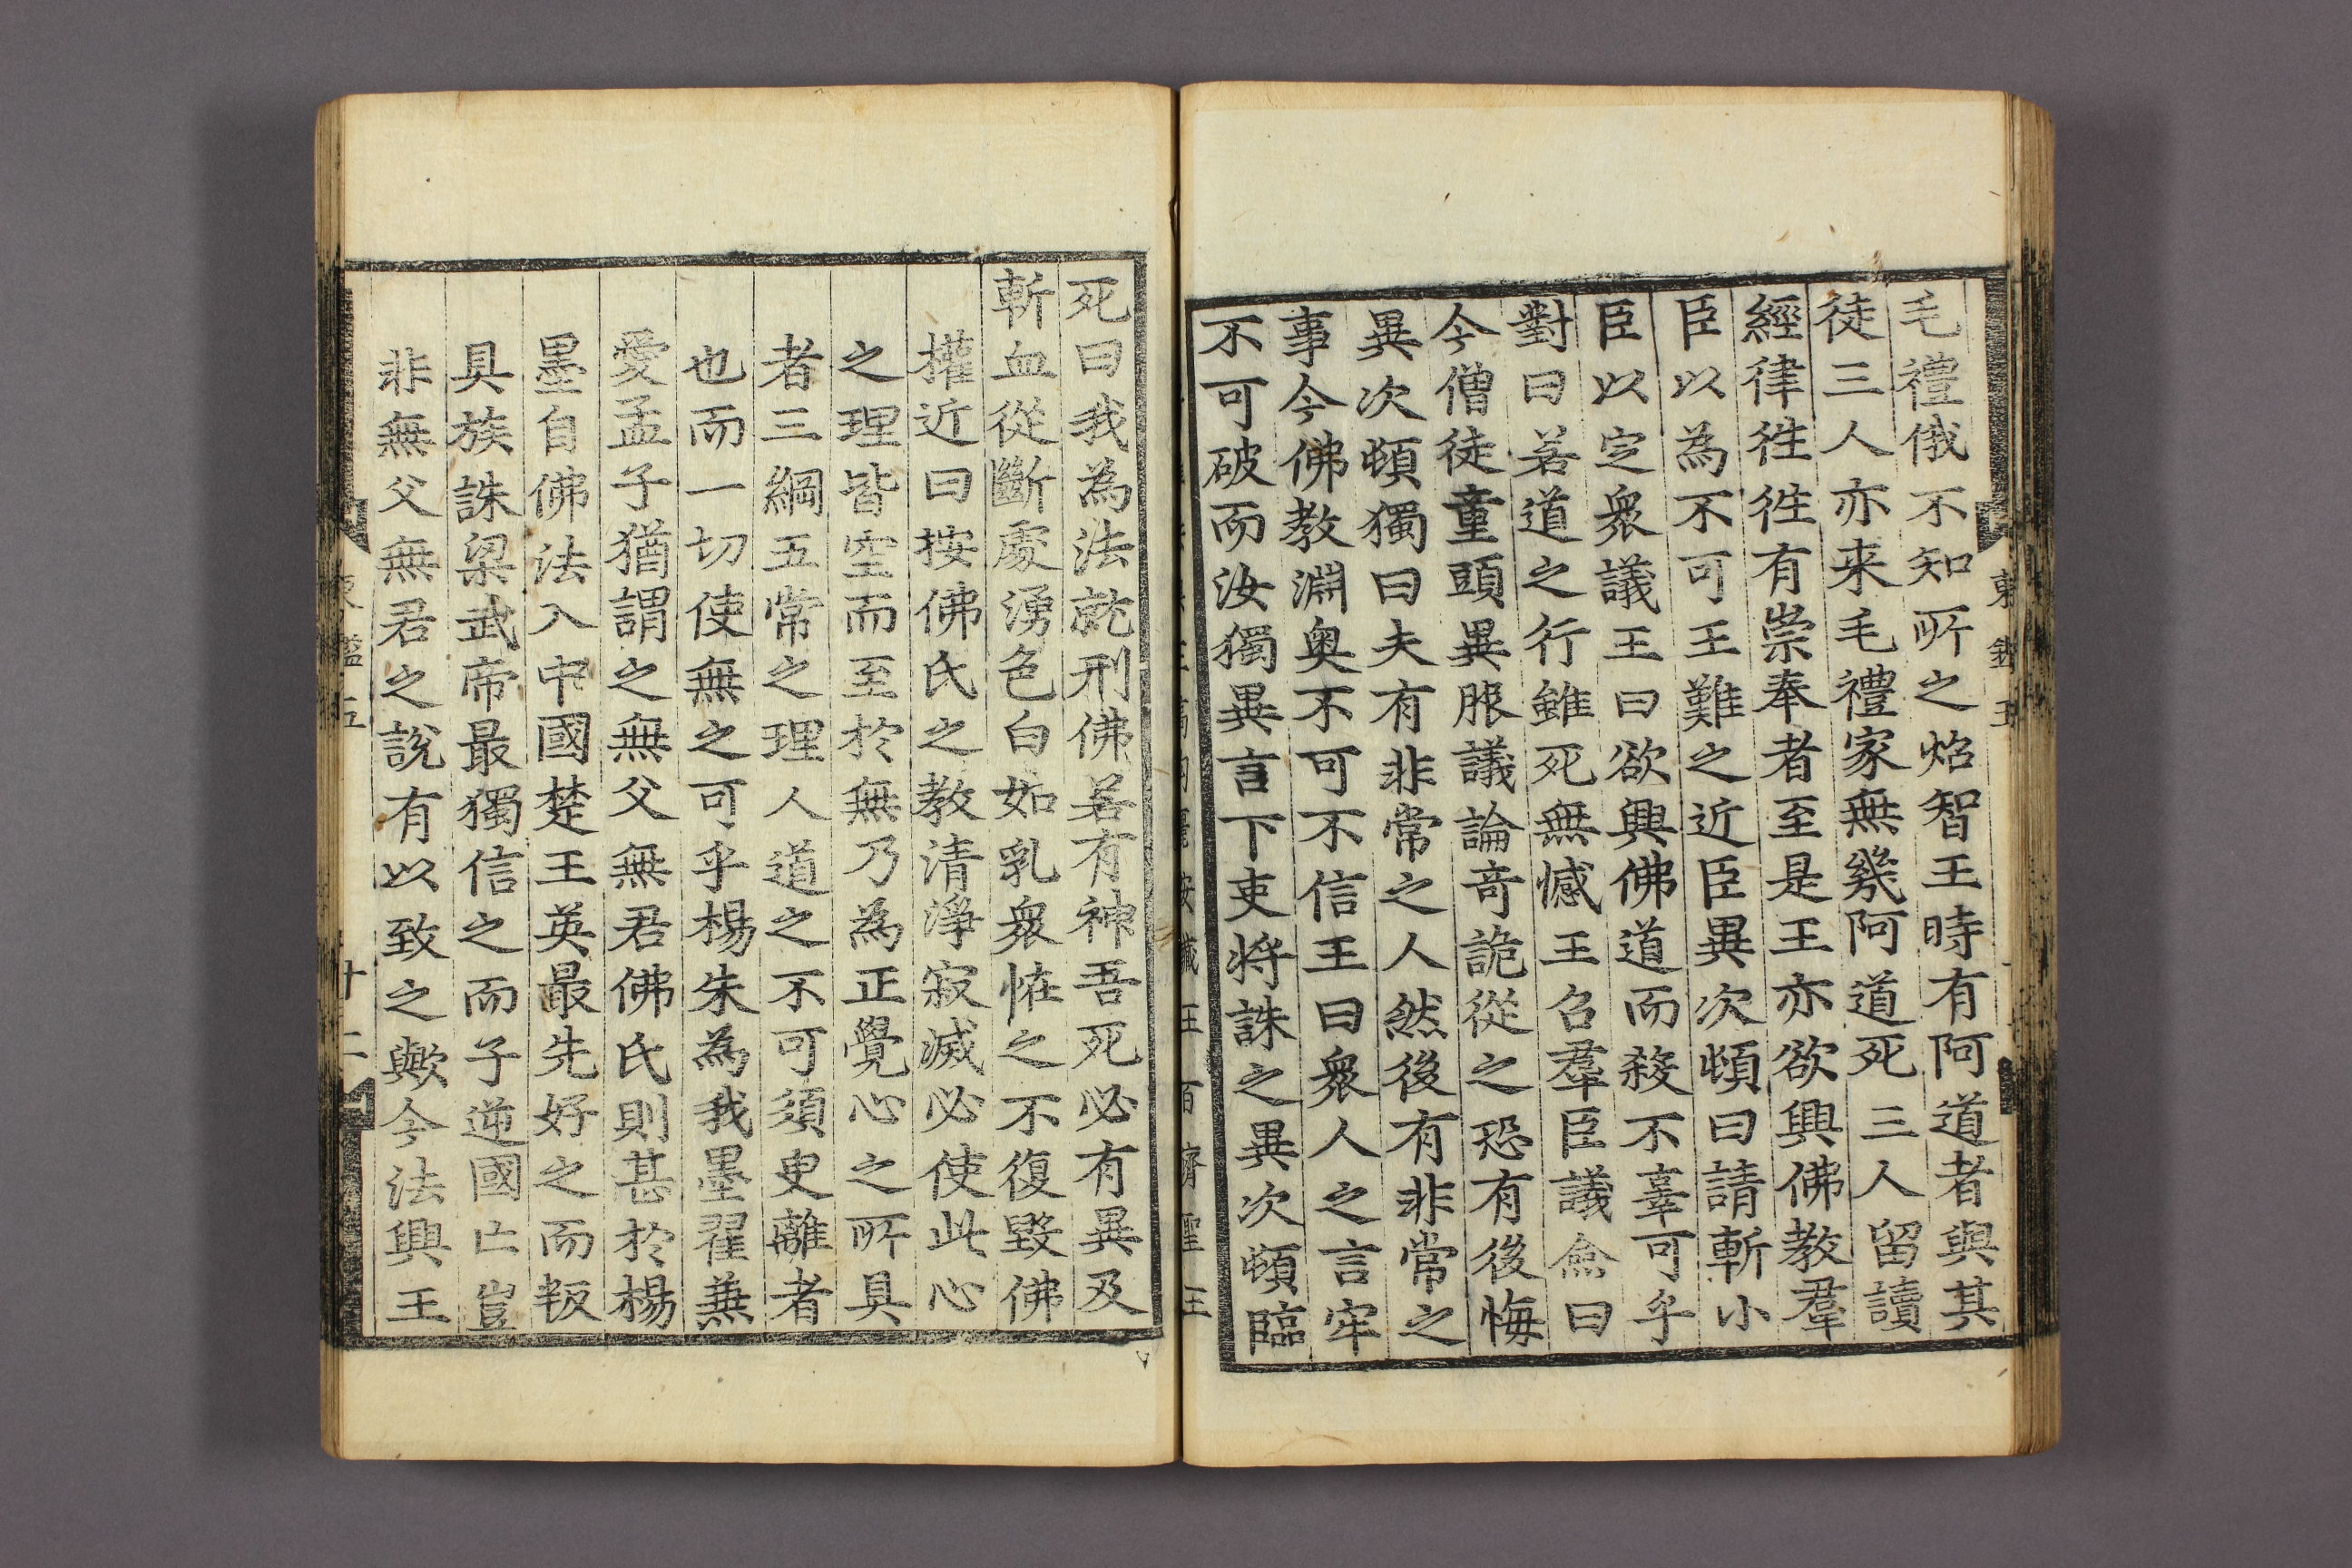 毛禮俄不知所之炤智王時有阿道者與其
徒三人亦来毛禮家無幾阿道死三人留讀
經律徃徃有崇奉者至是王亦欲興佛教羣
臣以為不可王難之近臣異次頓曰請斬小
臣以定衆議王曰欲興佛道而殺不辜可乎
對曰若道之行雖死無憾王召羣臣議僉曰
今僧徒童頭異服議論奇詭從之恐有後悔
異次頓獨曰夫有非常之人然後有非常之
事今佛教淵奥不可不信王曰衆人之言牢
不可破而汝獨異言下吏将誅之異次頓臨
死曰我為法就刑佛若有神吾死必有異及
斬血從斷處湧色白如乳衆怪之不復毀佛
權近曰按佛氏之教清淨寂滅必使此心
之理皆空而至於無乃為正覺心之所具
者三綱五常之理人道之不可須臾離者
也而一切使無之可乎楊朱為我墨翟兼
愛孟子猶謂之無父無君佛氏則甚於楊
墨自佛法入中國楚王英最先好之而叛
具族誅梁武帝最獨信之而子逆國亡豈
非無父無君之說有以致之歟今法興王
東鑑五
十二